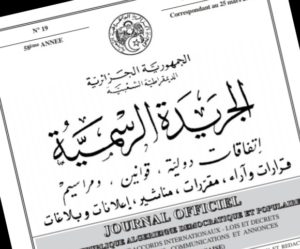 N° 19
Correspondant au 25 mars
58ème ANNEE
الجمهورية الجزائرية
الديمقراطية الشعبية
الجريدة الرسمية
إتفاقات دولية، قوانين، ومراسيم
قرارات وآراء، مقررات، مناشير، إعلانات وبلاغات
JOURNAL OFFICIEL
REPUBLIQUE ALGERIENNE DEMOCRATIQUE ET POPULAIRE
ACCORDS INTERNATIONAUX - LOIS ET DECRETS
COMMUNICATIONS ET ANNONCES